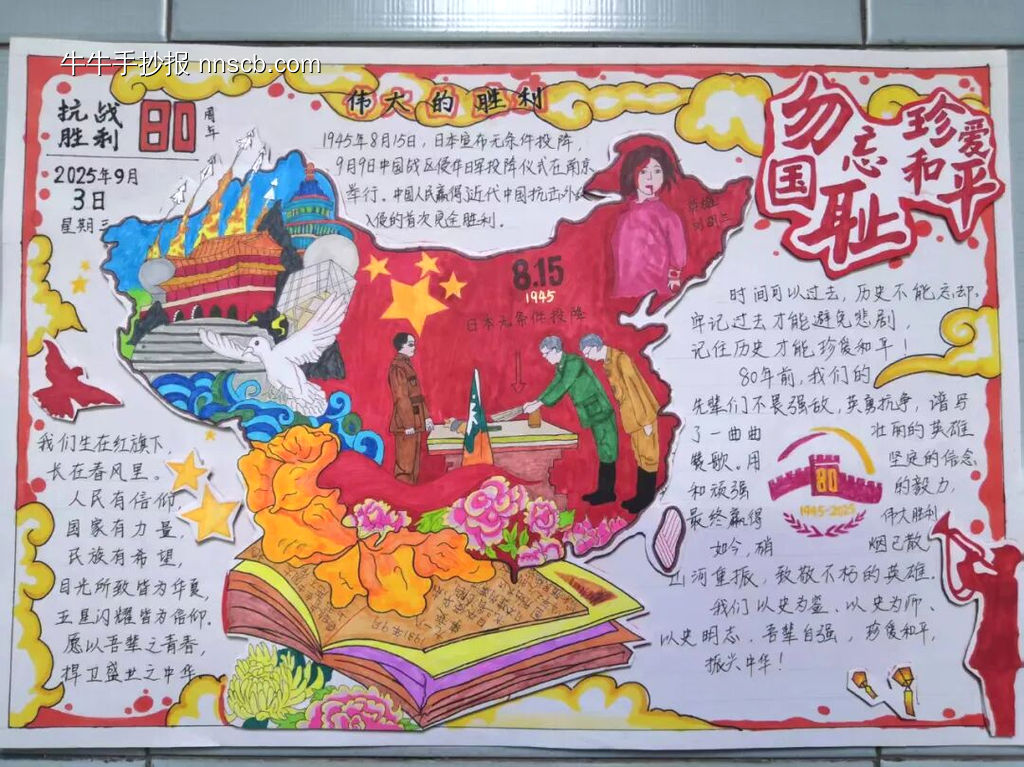 牛牛手抄报 nnscb.com
抗战
胜利
80
周年
2025年9月
3日
星期三
伟大的胜利
1945年8月15日，日本宣布无条件投降，
9月9日中国战区侵华日军投降仪式在南京
举行。中国人民赢得近代中国抗击外敌
入侵的首次完全胜利。
勿忘
国耻
珍爱
和平
8.15
1945
日本无条件投降
时间可以过去，历史不能忘却。
牢记过去才能避免悲剧，
记住历史才能珍爱和平！
80年前，我们的
先辈们不畏强敌，英勇抗争，谱写
了一曲曲 壮丽的英雄
赞歌。用 坚定的信念
和顽强 的毅力，
最终赢得 伟大胜利
如今，硝 烟已散，
山河重振，致敬不朽的英雄。
我们以史为鉴、以史为师、
以史明志，吾辈自强，珍爱和平，
振兴中华！
80
1945-2025
我们生在红旗下，
长在春风里。
人民有信仰，
国家有力量，
民族有希望，
目光所致皆为华夏，
五星闪耀皆为信仰。
愿以吾辈之青春，
捍卫盛世之中华。